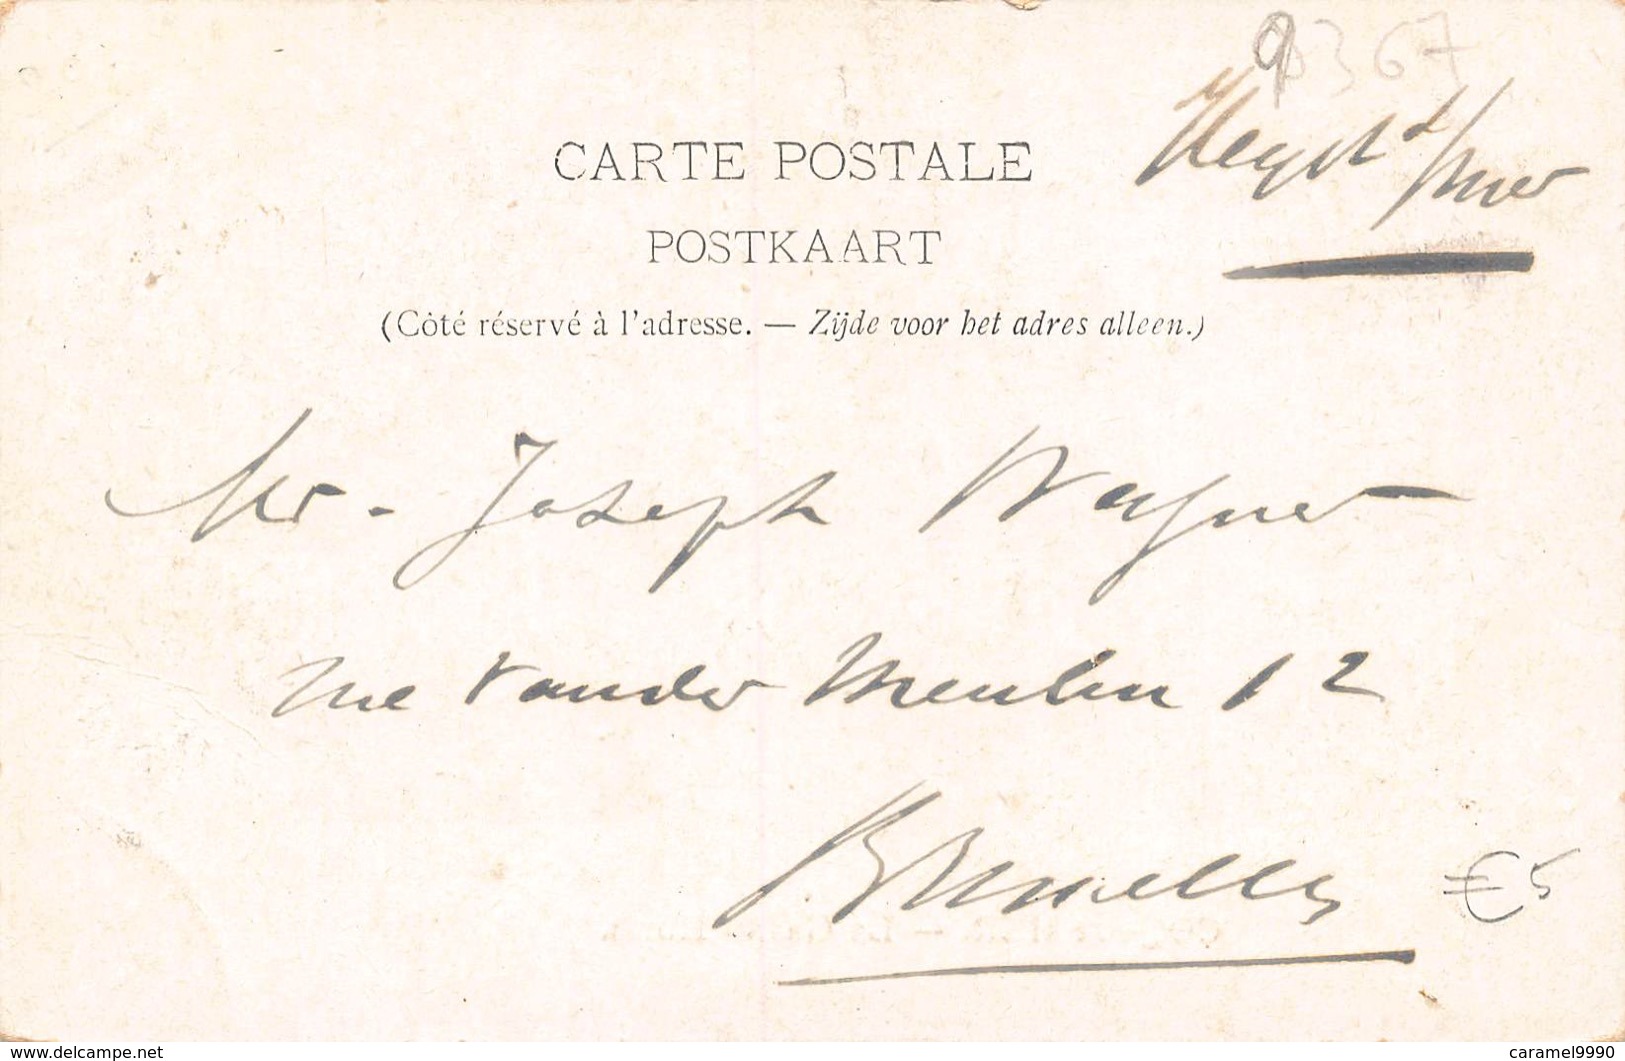 9367
Heyst s/mer
CARTE POSTALE
POSTKAART
(Côté réservé à l'adresse. — Zijde voor het adres alleen.)
Mr - Joseph Wagner
rue Vander Meulen 12
Bruxelles
€ 5
www.delcampe.net
caramel9990